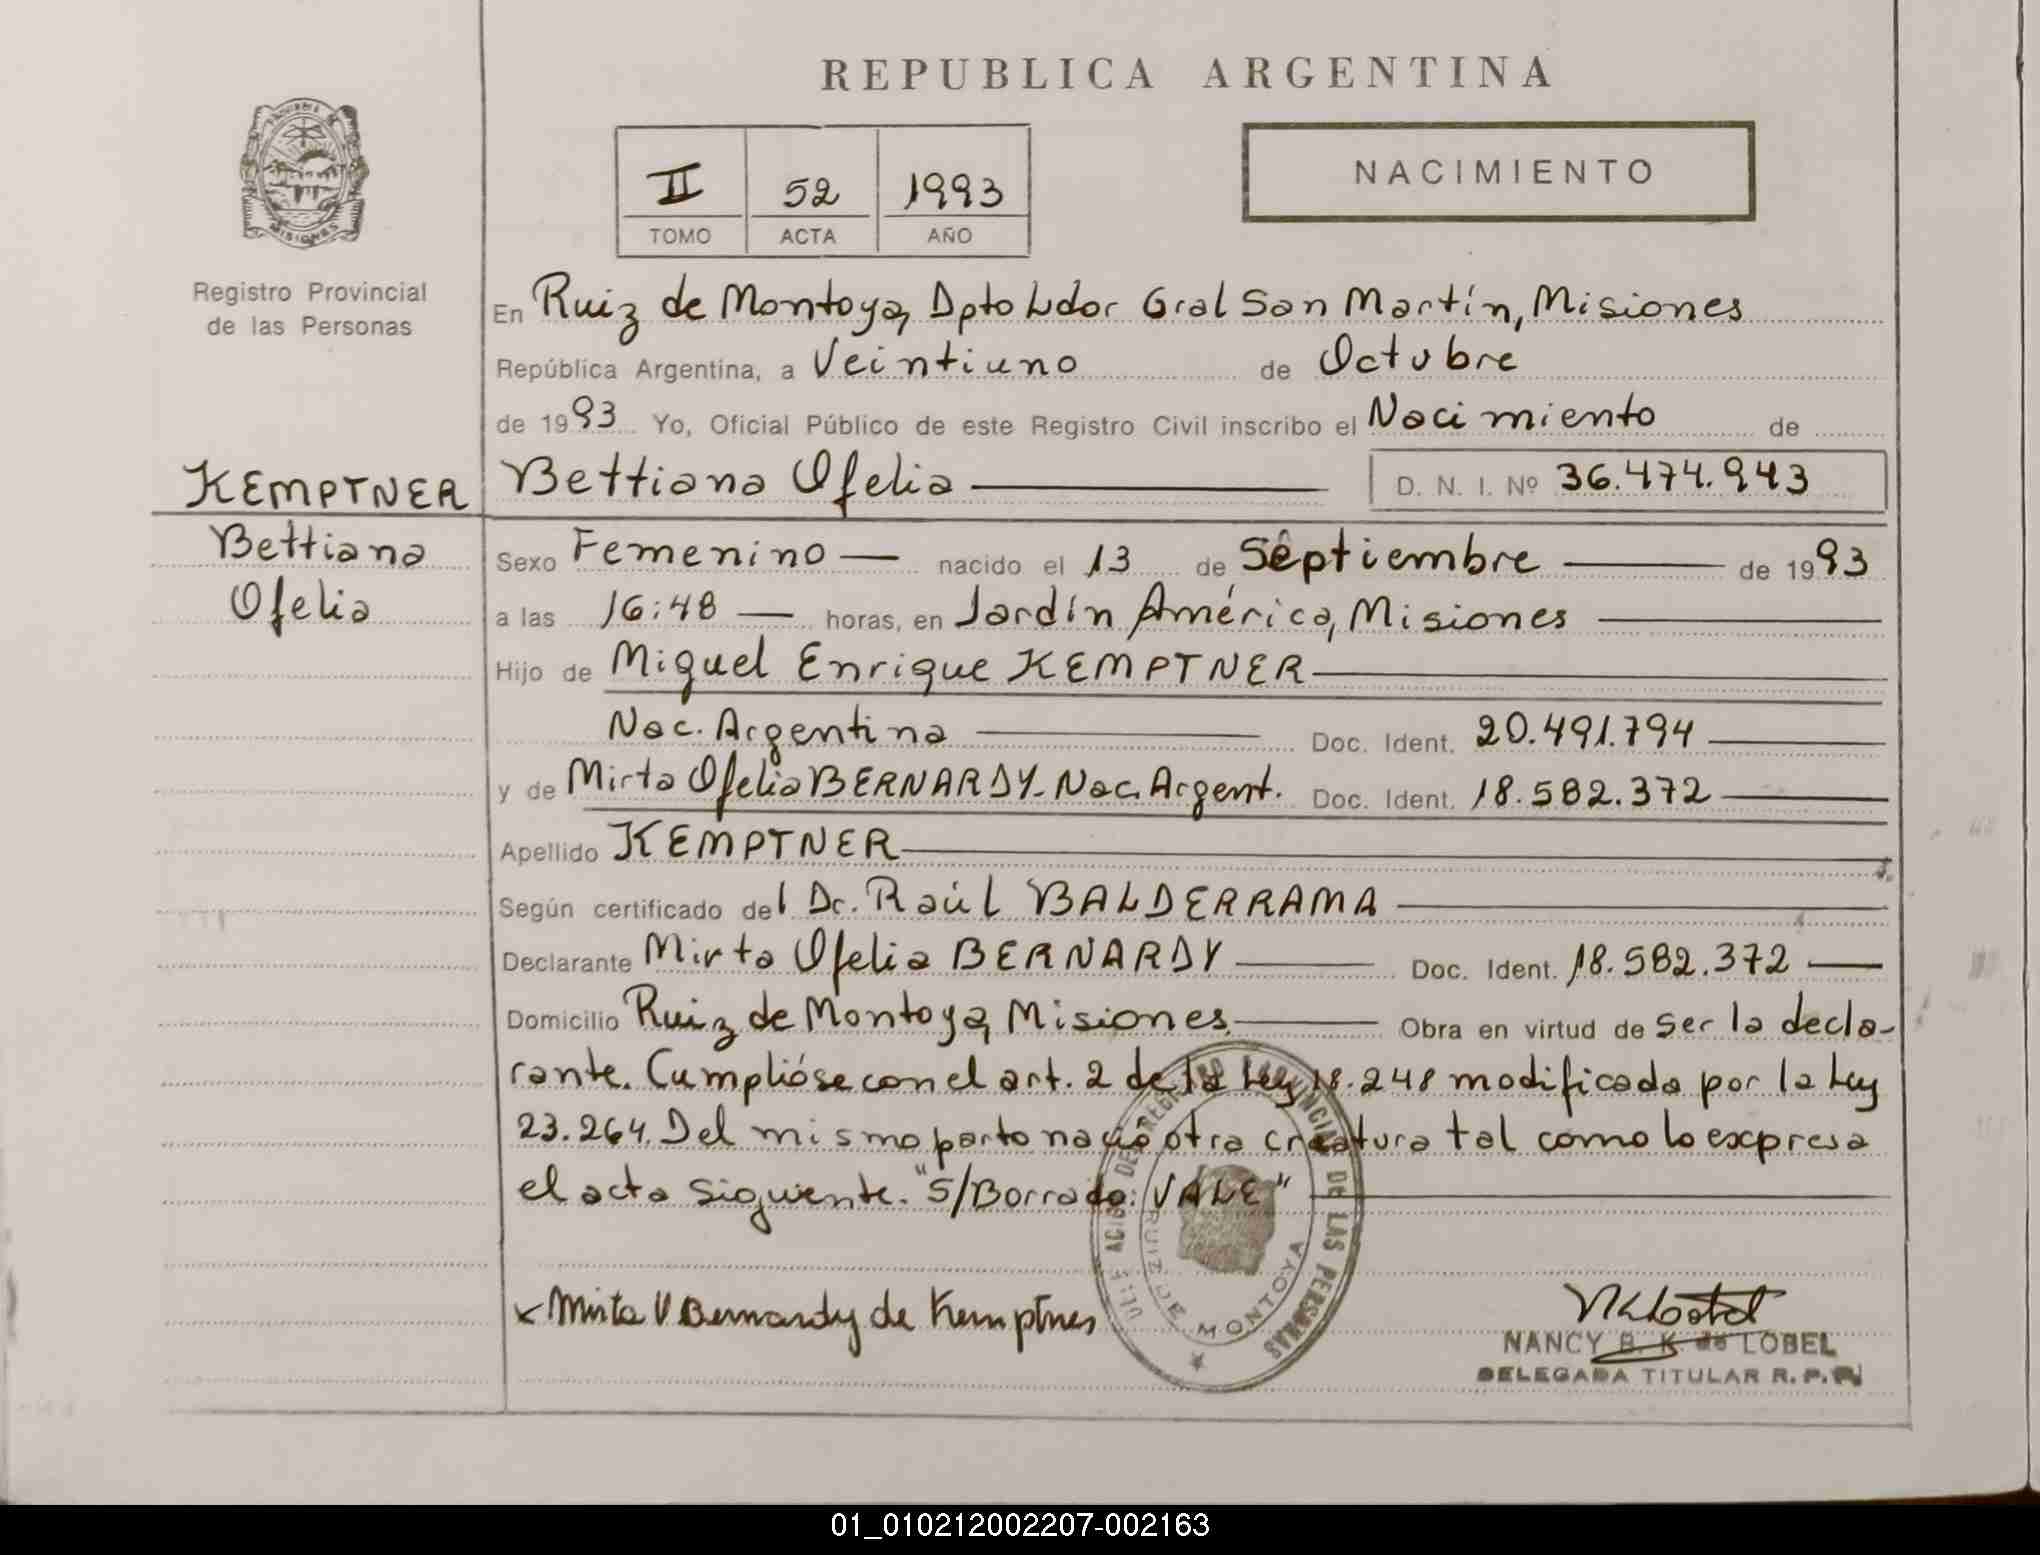 REPUBLICA ARGENTINA
MISIONES
Registro Provincial
de las Personas
II 52 1993
TOMO ACTA AÑO
NACIMIENTO
En Ruiz de Montoya, Dpto Ldor Gral San Martín, Misiones
República Argentina, a Veintiuno de Octubre
de 1993 Yo, Oficial Público de este Registro Civil inscribo el Nacimiento de
KEMPTNER
Bettiana
Ofelia
Bettiana Ofelia D. N. I. Nº 36.474.943
Sexo Femenino nacido el 13 de Septiembre de 1993
a las 16:48 horas, en Jardín América, Misiones
Hijo de Miguel Enrique KEMPTNER
Nac. Argentina Doc. Ident. 20.491.794
y de Mirta Ofelia BERNARDY- Nac. Argent. Doc. Ident. 18.582.372
Apellido KEMPTNER
Según certificado del Dr. Raúl BALDERRAMA
Declarante Mirta Ofelia BERNARDY Doc. Ident. 18.582.372
Domicilio Ruiz de Montoya, Misiones Obra en virtud de ser la decla-
rante. Cumplióse con el art. 2 de la Ley 18.248 modificada por la Ley
23.264. Del mismo parto nacio otra creatura tal como lo expresa
el acta siguiente. "S/Borrado: VALE"
DE REGISTRO PROVINCIAL DE LAS PERSONAS
RUIZ DE MONTOYA
Mirta Bernardy de Kemptner
NANCY B. K. de LOBEL
DELEGADA TITULAR R.P.P.
01_010212002207-002163